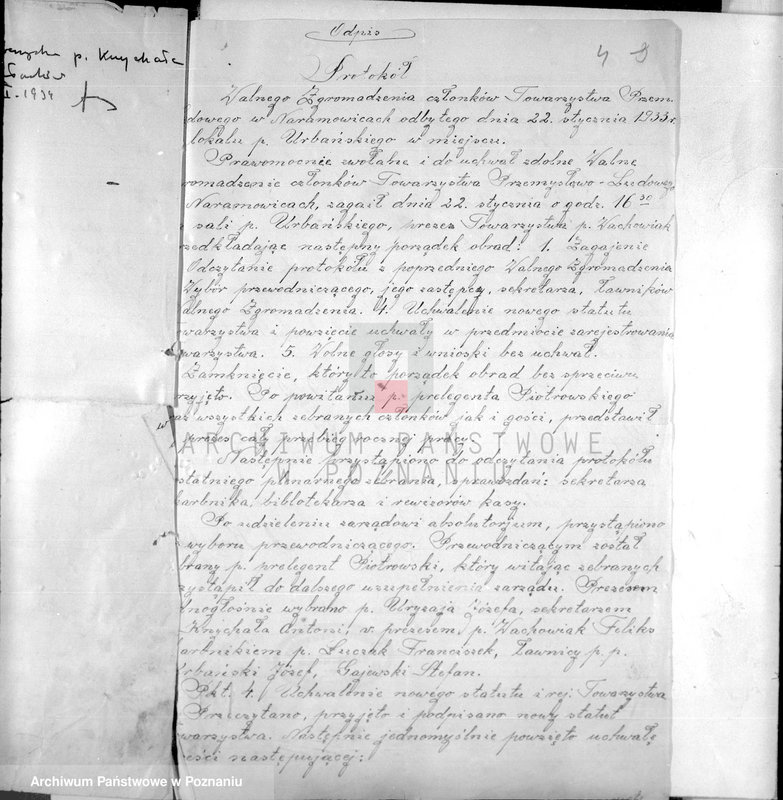 Odpis
4 9
p. Knychała
1934
Protokół
Walnego Zgromadzenia członków Towarzystwa Przem.
dowego w Naramowicach odbytego dnia 22. stycznia 1933 r.
lokalu p. Urbańskiego w miejscu.
Prawomocnie zwołalne i do uchwał zdolne Walne
romadzenie członków Towarzystwa Przemysłowo-Ludowego
Naramowicach, zagaił dnia 22. stycznia o godz. 16 30
sali p. Urbańskiego, prezes Towarzystwa p. Wachowiak
rzedkładając następny porządek obrad: 1. Zagajenie
Odczytanie protokółu z poprzedniego Walnego Zgromadzenia
Wybór przewodniczącego, jego zastępcy, sekretarza, ławników
alnego Zgromadzenia. 4. Uchwalenie nowego statutu
owarzystwa i powzięcie uchwały w przedmiocie zarejestrowania
warzystwa. 5. Wolne głosy i wnioski bez uchwał.
Zamknięcie, który to porządek obrad bez sprzeciwu
rzyjęto. Po powitaniu p. prelegenta Piotrowskiego
az wszystkich zebranych członków jak i gości, przedstawił
prezes cały przebieg rocznej pracy.
Następnie przystąpiono do odczytania protokółu
statniego plenarnego zebrania, sprawozdań: sekretarza
karbnika, biblotekarza i rewizorów kasy.
Po udzieleniu zarządowi absolutorjum, przystąpiono
wyboru przewodniczącego. Przewodniczącym został
brany p. prelegent Piotrowski, który witając zebranych
zystąpił do dalszego uzupełnienia zarządu. Prezesem
dnogłośnie wybrano p. Uryzaja Józefa, sekretarzem
Knychała Antoni, v. prezesem p. Wachowiak Feliks
karbnikiem p. Łuczak Franciszek, Ławnicy p.p.
Urbański Józef, Gajewski Stefan.
Pkt. 4. Uchwalenie nowego statutu i rej. Towarzystwa
Przeczytano, przyjęto i podpisano nowy statut
warzystwa. Następnie jednomyślnie powzięto uchwałę
reści następującej:
ARCHIWUM PAŃSTWOWE
W POZNANIU
Archiwum Państwowe w Poznaniu